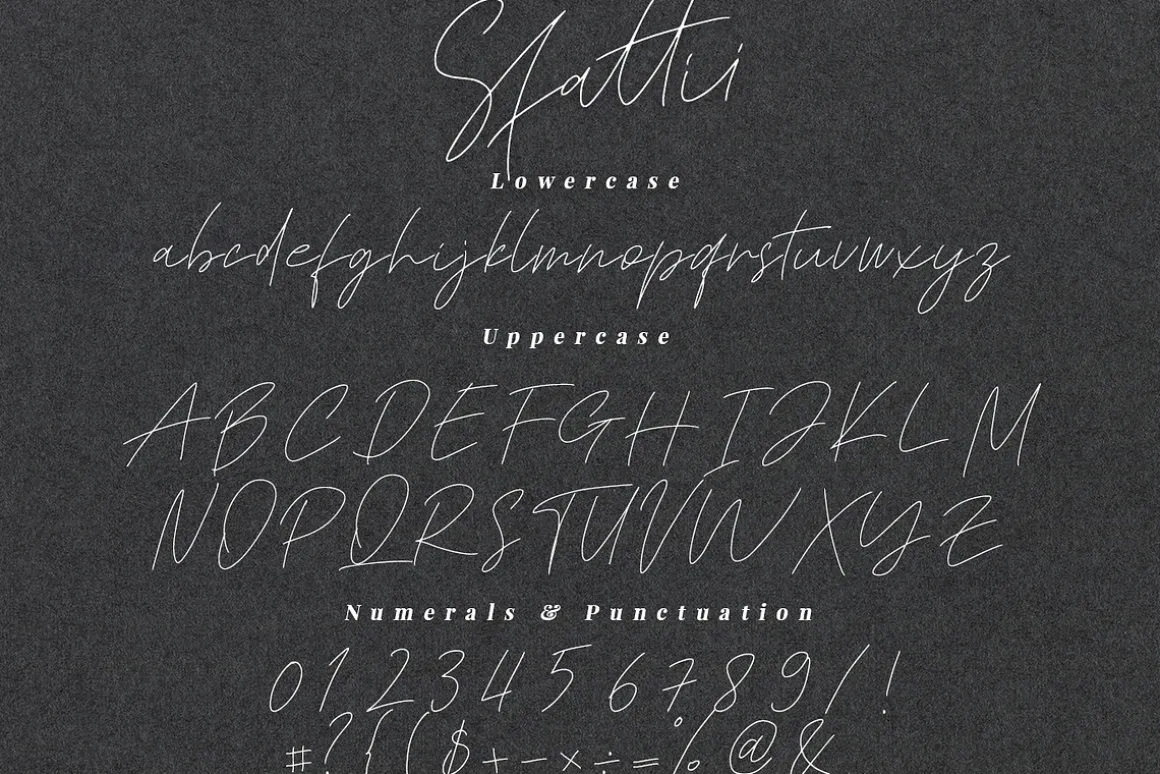 Sfattii
Lowercase
abcdefghijklmnopqrstuvwxyz
Uppercase
ABCDEFGHIJKLM
NOPQRSTUVWXYZ
Numerals & Punctuation
0123456789/!
#?{($+-×÷=%@&